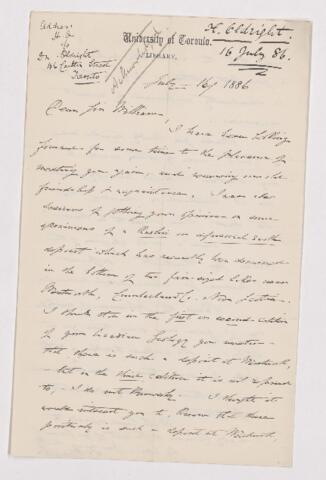 Address
H. A
c/o
Dr. Aldright
Carlton Street
Toronto
H. Aldright.
16 July 86.
University of Toronto.
LIBRARY.
July 16/ 1886
Dear Sir William,
I have been looking
forward for some time to the pleasure of
meeting you again, and renewing our old
friendship & acquaintance. I am also
desirous of getting your opinion on some
specimens of a infusorial earth
deposit which has recently been discovered
in the bottom of two fair-sized lakes near
Wentworth, Cumberland Co. Nova Scotia.
I think that in the first or second edition
of your Acadian Geology you mention
that there is such a deposit at Wentworth,
but in the third edition it is not referred
to, I do not know why. I thought it
would interest you to know that there
positively is such a deposit at Wentworth,